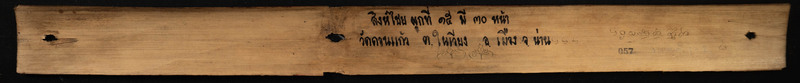 สิงห์ไชย ผูกที่ ๑๕ มี ๓๐ หน้า
วัดดวนแก้ว ต. ในเวียง อ. เมือง จ. น่าน
057